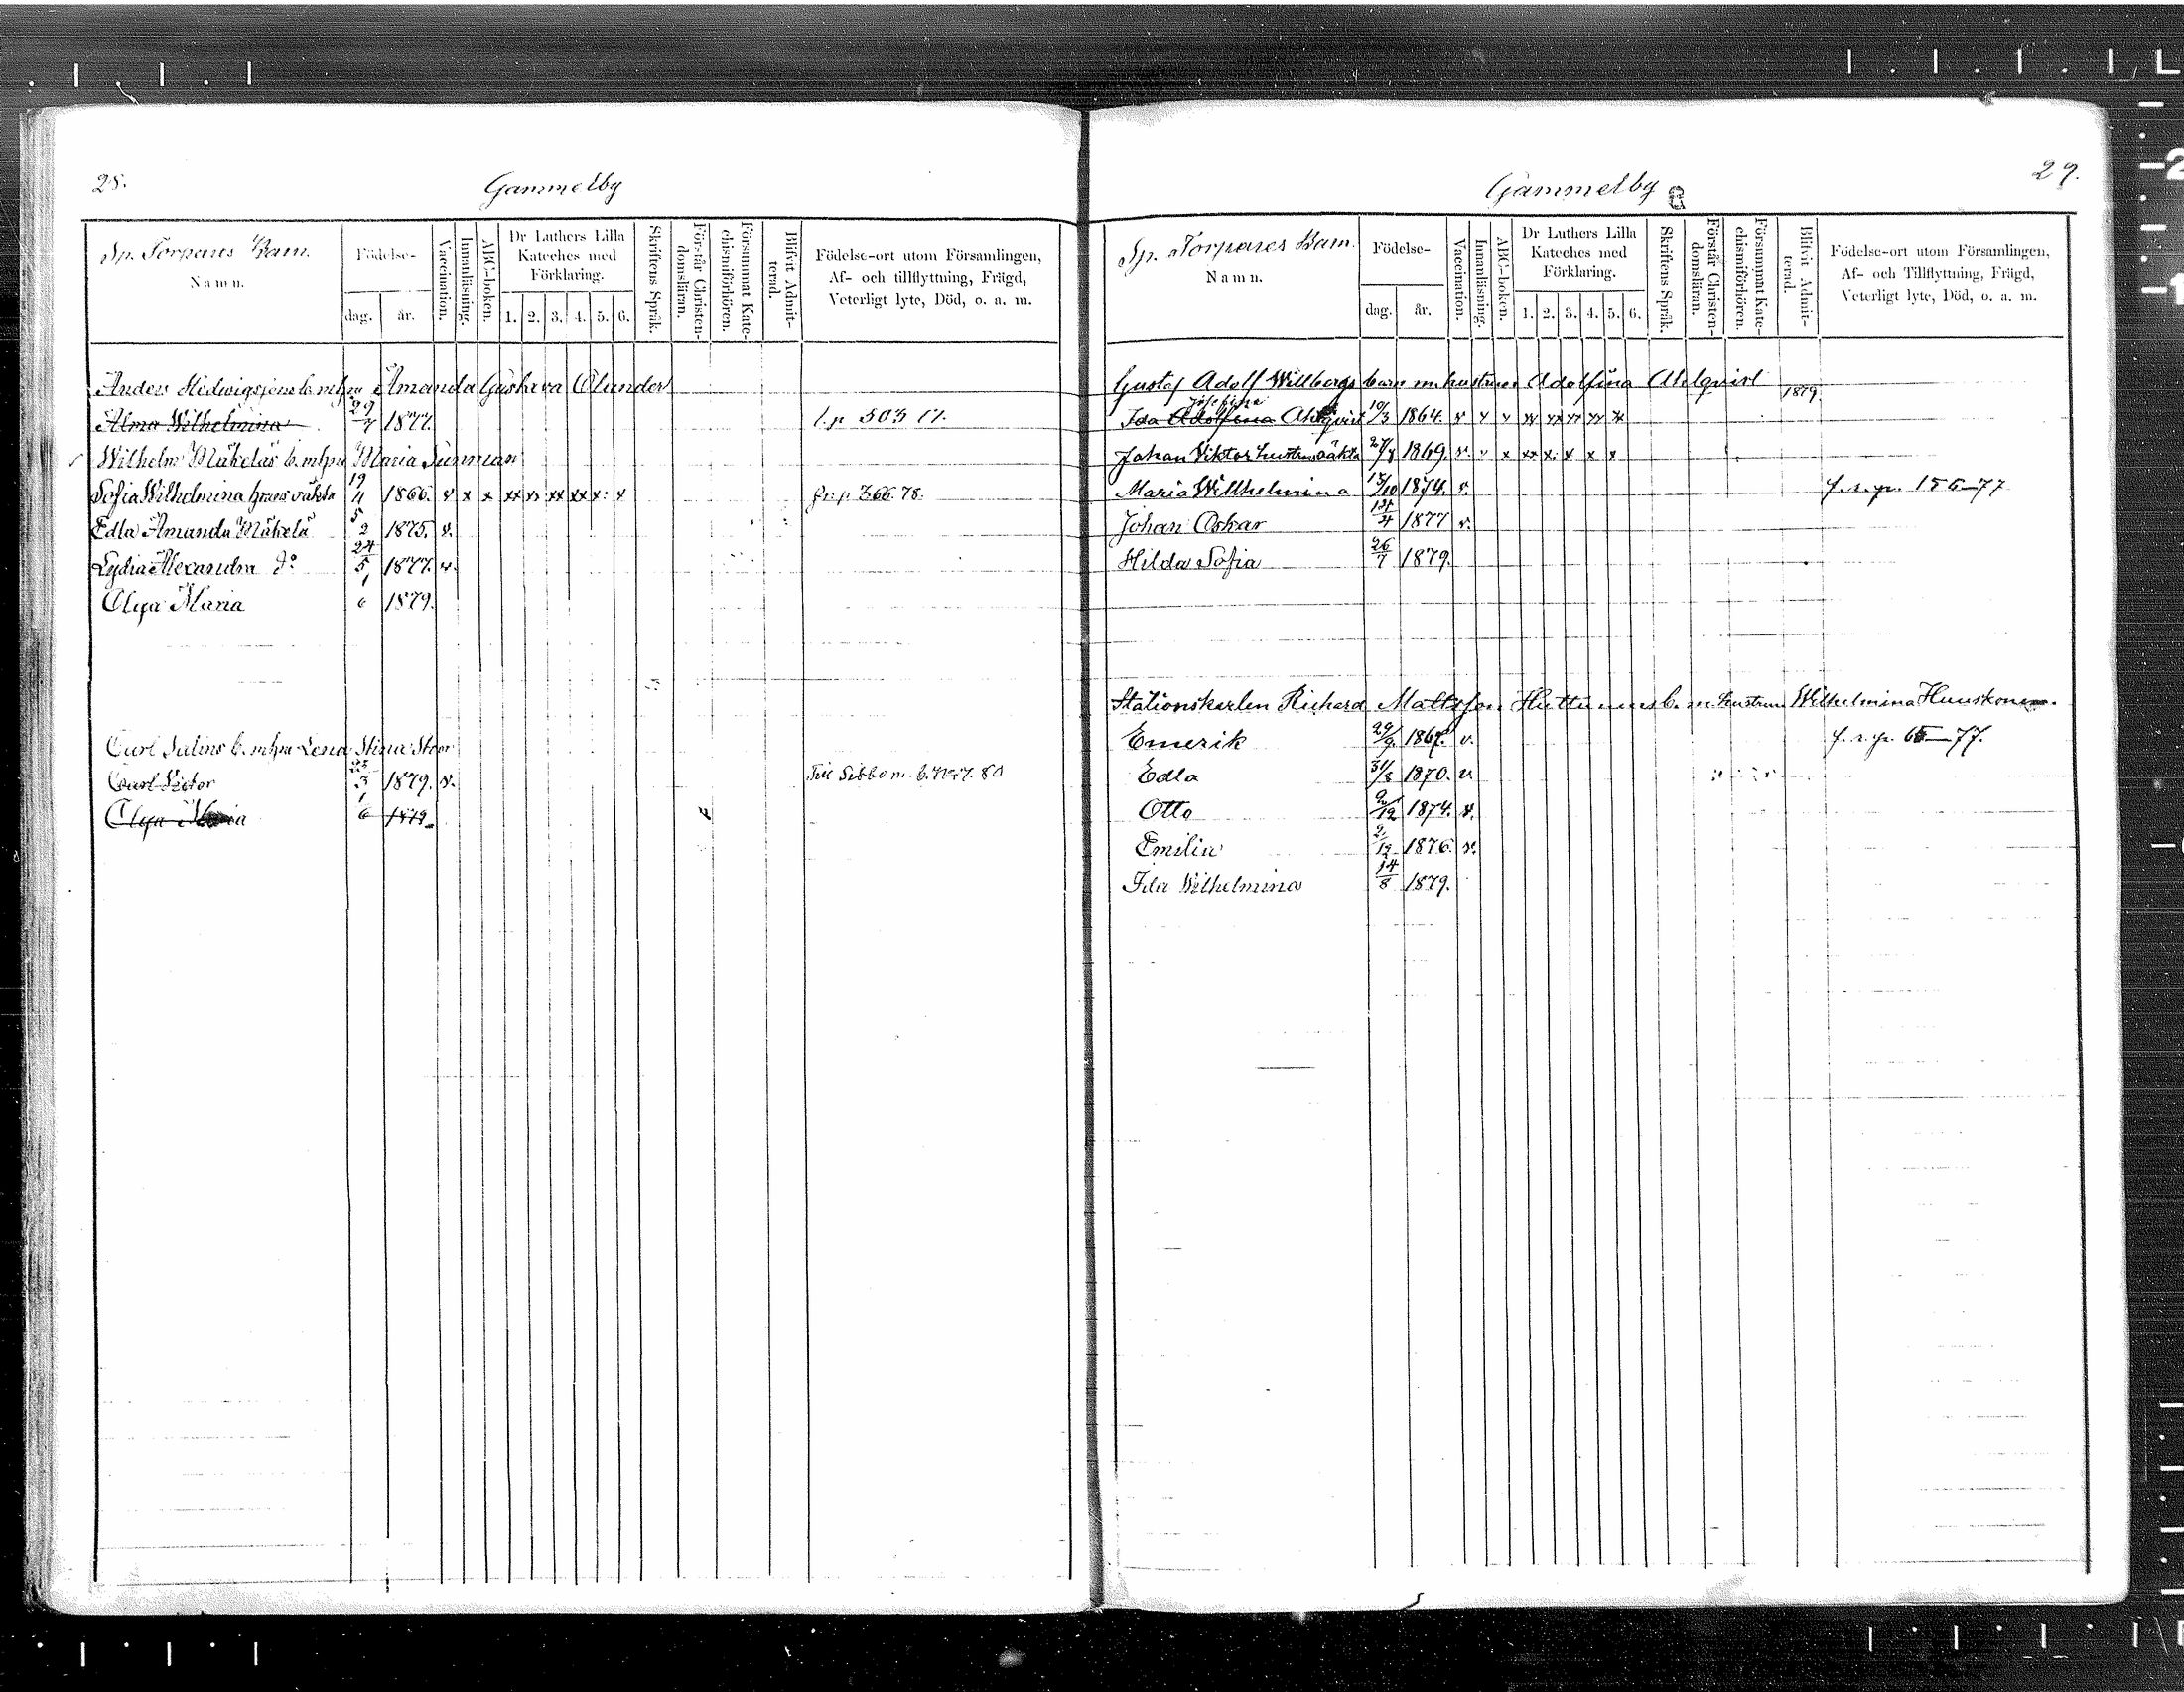 28.
Gammelby
Sp. Torpares Barn.
Namn.
Födelse-
dag. år.
Vaccination.
Innanläsning.
ABC-boken.
Dr Luthers Lilla
Kateches med
Förklaring.
1. 2. 3. 4. 5. 6.
Skriftens Språk.
Förstår Christen-
domsläran.
Försummat Kate-
chismiförhören.
Blifvit Admit-
terad.
Födelse-ort utom Församlingen,
Af- och tillflyttning, Frägd,
Veterligt lyte, Död, o. a. m.
Anders Hedwigsjons b. m hu Amanda Gustava Ölander
Alma Wilhelmina 29/7 1877. l.p 503 77.
Wilhelm Mäkeläs b. m hu Maria Sunman
Sofia Wilhelmina hrues oäkta 19/4 1866. v x x xx xx xx xx x x fr.p 366. 78.
Edla Amanda Mäkelä 5/2 1875. v.
Lydia Alexandra do 24/5 1877. v.
Olga Maria 1/6 1879.
Carl Salins b. m hu Lena Stina Stoor
Carl Victor 23/3 1879. v. Till Sibbo m. b. 80
Olga Maria 1/6 1879
29.
Gammelby
Sp. Torpares Barn.
Namn.
Födelse-
dag. år.
Vaccination.
Innanläsning.
ABC-boken.
Dr Luthers Lilla
Kateches med
Förklaring.
1. 2. 3. 4. 5. 6.
Skriftens Språk.
Förstår Christen-
domsläran.
Försummat Kate-
chismiförhören.
Blifvit Admit-
terad.
Födelse-ort utom Församlingen,
Af- och Tillflyttning, Frägd,
Veterligt lyte, Död, o. a. m.
Gustaf Adolf Willbergs barn m. hustrun Adolfina Ahlqvist
1879.
Josefina
Ida Adolfina Ahlqvist 10/3 1864. v v v xx xx xx xx xx
Johan Viktor hustruns oäkta 27/8 1869. v. v x xx x x x x
Maria Willhelmina 15/10 1874. v. f. r. p. 156-77
Johan Oskar 12/4 1877 v.
Hilda Sofia 26/7 1879.
Stationskarlen Richard Mattsson Huttunens b. m. hustrun Wilhelmina Huuskonen.
Emerik 29/9 1867. v. f. r. p. 65-77.
Edla 31/8 1870. v.
Otto 9/12 1874. v.
Emilia 2/12 1876. v.
Ida Wilhelmina 14/8 1879.